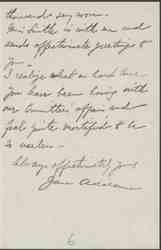 thousand say more.
Miss Smith is with me and
sends affectionate greetings to
you.
I realize what a hard time
you have been having with
our Committee's affairs and
feel quite mortified to be
so useless.
Always affectionately yours
Jane Addams
6